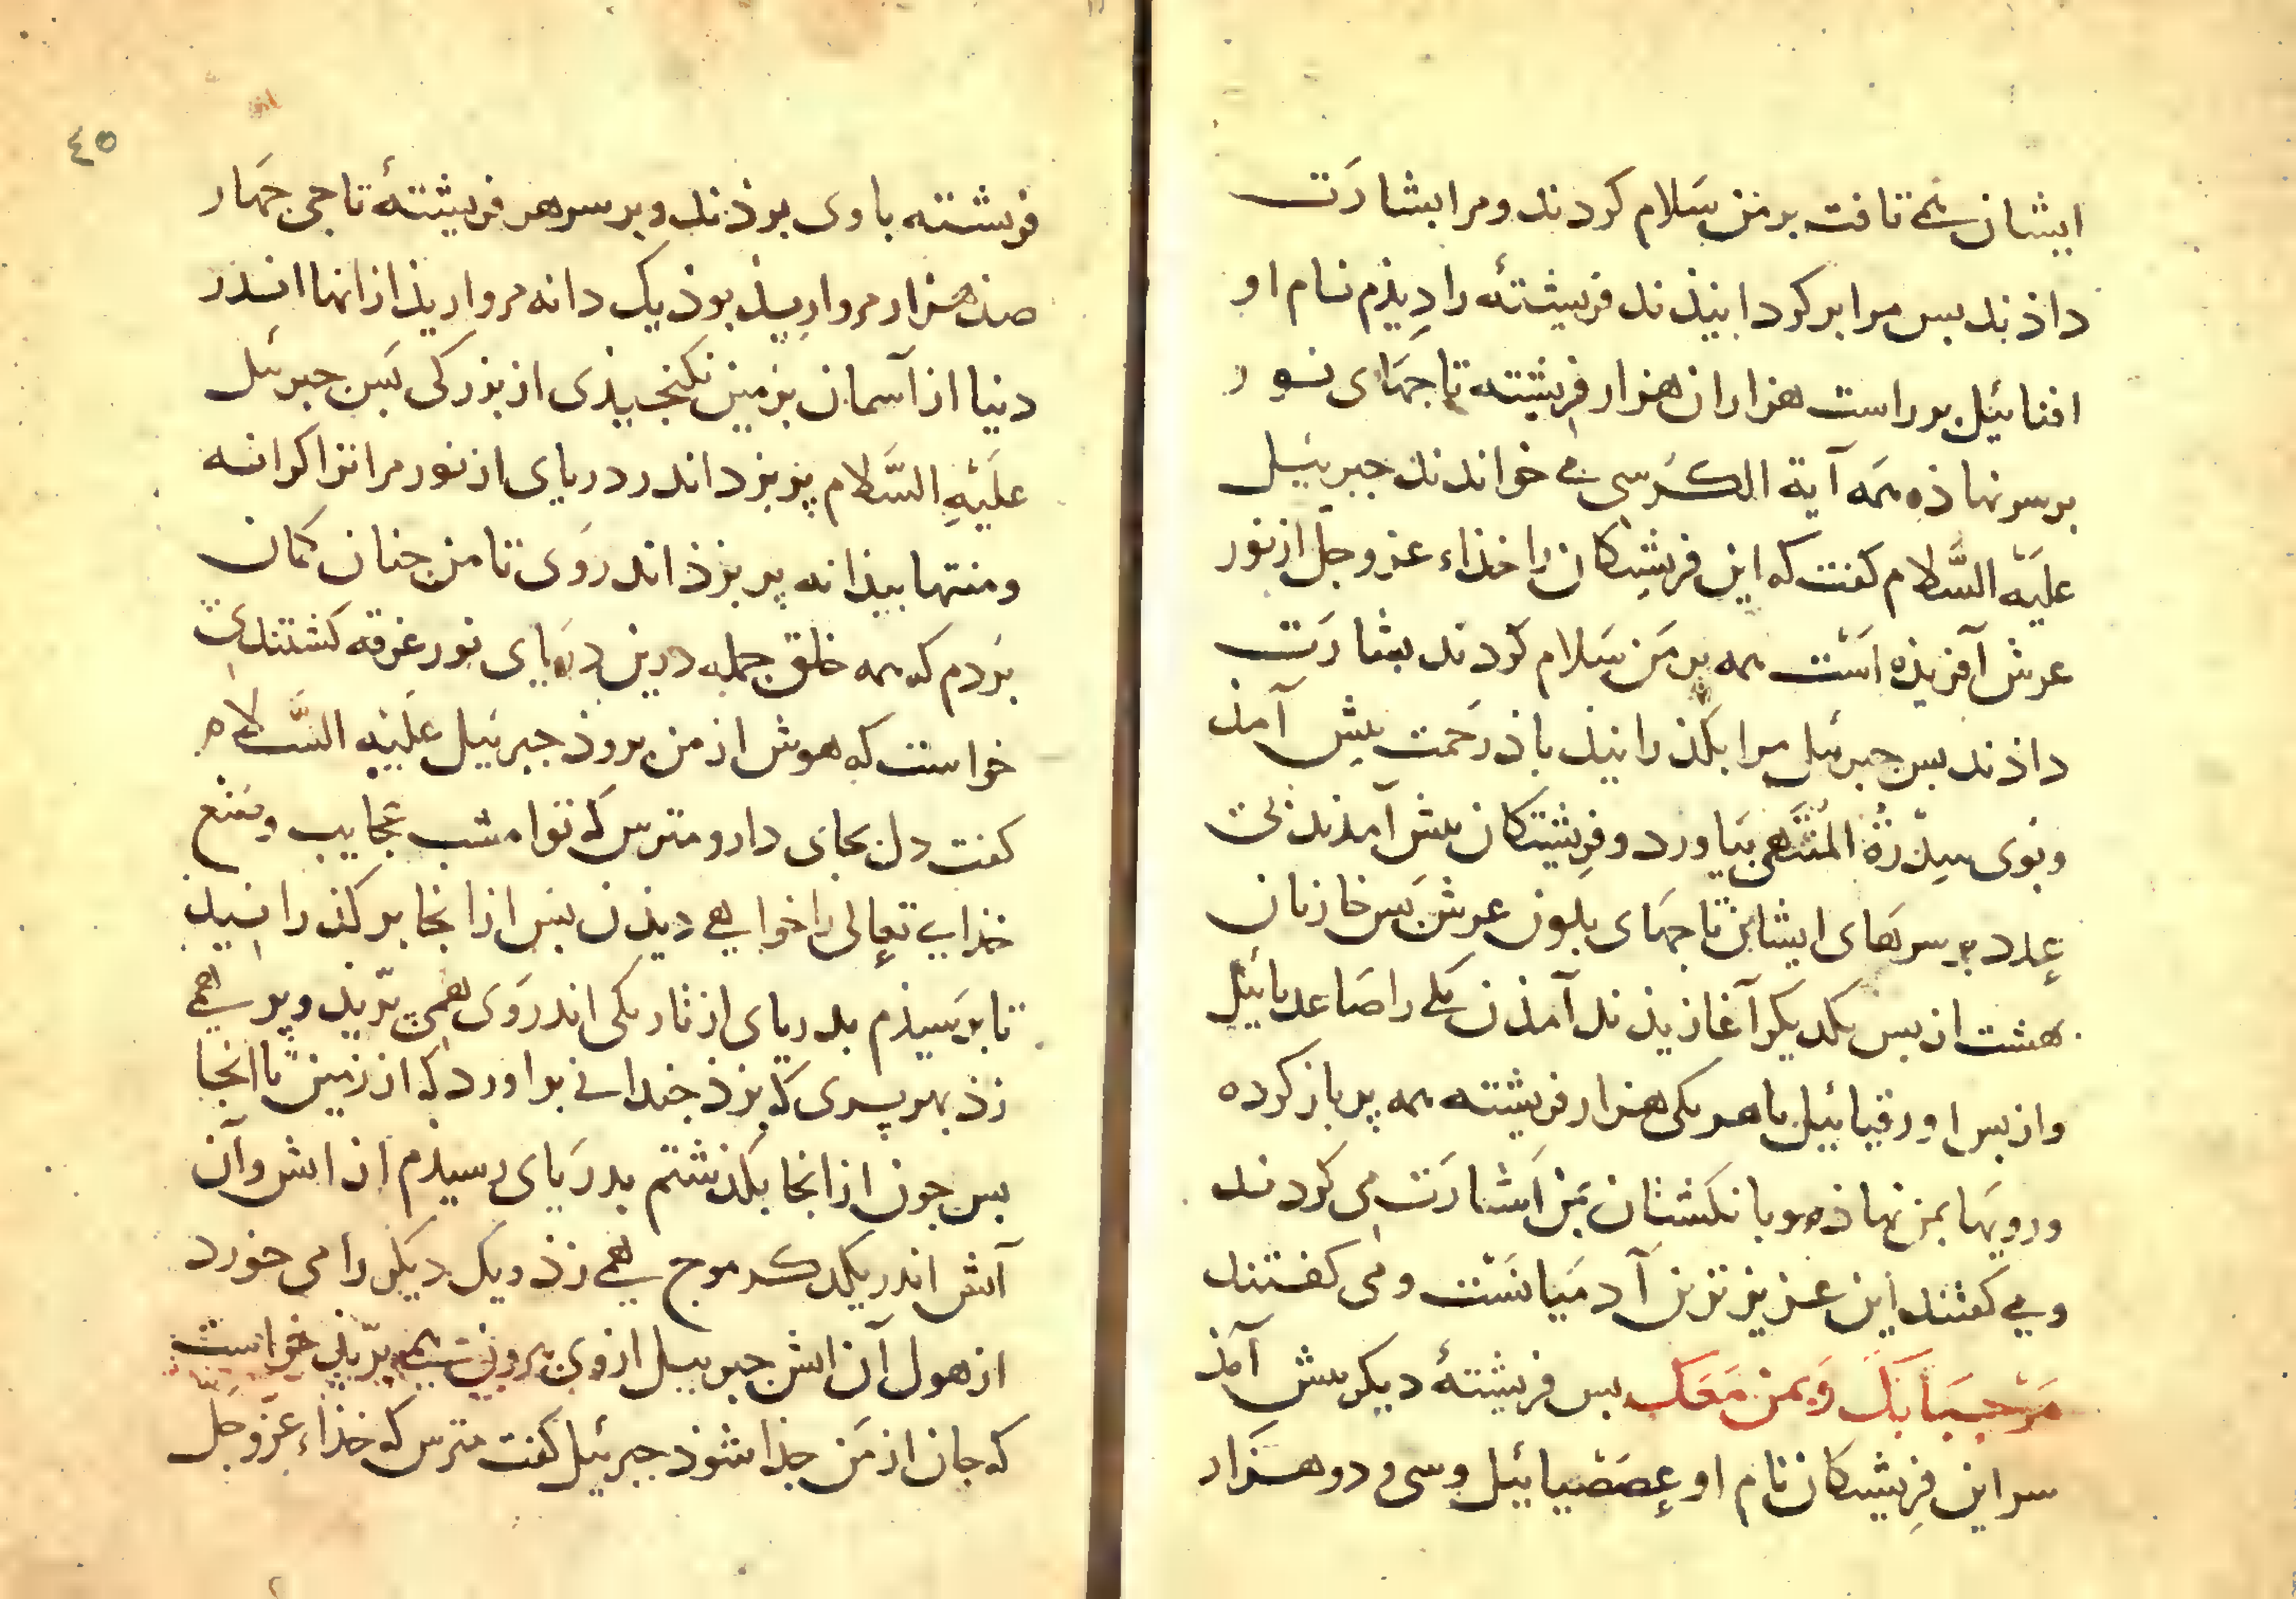 ایشان می تافت بر من سَلام کردند و مرا بشارَت
داذند بس مرا بر کردابنیذند فریشتهٔ را دِیذم نام او
افنائیل بر راست هزاران هزار فریشته تاجهَای نور
بر سر نهاذه همَه آیة الکُرسی می خواندند جبرئیل
علَیْهِ السَّلام کفت که این فریشتکان را خذاء عز و جل از نور
عرش آفریذه اسَت همه بر مَن سَلام کردند بشارَت
داذند بس جبرئیل مرا بکذرانیذ باذ رَحمت بیش آمذ
و بوی سِدْرَةُ المُنْتَهَی بیَاورد و فرِیشتکان بیش آمذند بی
عدد بر سرهَای ایشان تاجهَای بلون عرش بَس خازنان
هشت از بس یکدیکر آغازیذند آمذن یکی را صَاعدیائیل
و از بس او رقیائیل با هر یکی هزار فریشته همه پر باز کرده
و رویهَا بمن نهاذه و بانکشتان بمَن اَشارَت می کردند
و می کفتند این عزیزترین آدمیَانسَت و می کفتند
مَرْحَبَبَا بکَ وَ بمَن مَعَکَ بس فریشتهٔ دیکر بیش آمذ
سر این فرِیشتکان نام او عصَصْیائیل و سی و دو هزَار
٤٥
فریشته با وی بوذند و بر سر هر فریشتهٔ تاجی جهَار
صذ هزار مروارِیذ بوذ یک دانه مرواریذ از انها اندر
دنیا از آسمان بزمین نکنجیذی از بزرکی بَس جبرئیل
علَیْهِ السَّلام پر بزد اندر دریای از نور مر انرا کرانه
و منتها بیذا نه پر بزذ اندر وَی تا من جنان کمان
بَردم که همه خلق جمله درین دریَای نور غرقه کشتندی
خواست که هوش از من بروذ جبرئیل علَیْهِ السَّلام
کفت دل بجای دار و مترس که تو امشب عجایب و صُنع
خذای تعالی را خواهی دیذن بس از انجا بر کذرانیذ
تا برَسیذم بدریای از تاریکی اندر وَی همی پرّیذ و پر همی
زذ بهر پری که بزذ جندانی براورد که از زمین تا انجا
بس جون از انجا بکذشتم بدرَیای رسیذم از اتش و آن
آتش اندر یکدیکر موج همی زذ و یک دیکر را می خورد
از هول آن اتش جبرییل از وی بروی همی پرّیذ خواست
که جان از مَن جذا شوذ جبرئیل کفت مترس که خذاء عزّ و جَلّ